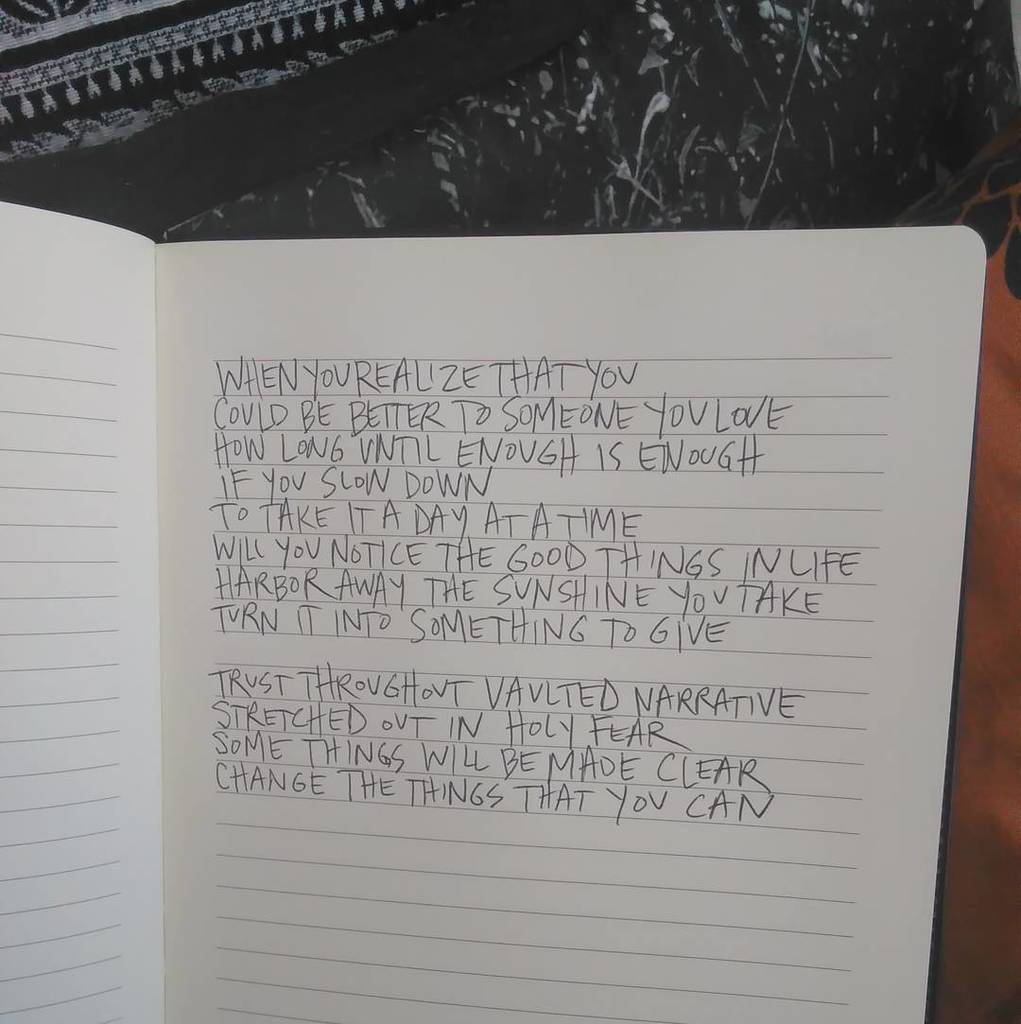 WHEN YOU REALIZE THAT YOU
COULD BE BETTER TO SOMEONE YOU LOVE
HOW LONG UNTIL ENOUGH IS ENOUGH
IF YOU SLOW DOWN
TO TAKE IT A DAY AT A TIME
WILL YOU NOTICE THE GOOD THINGS IN LIFE
HARBOR AWAY THE SUNSHINE YOU TAKE
TURN IT INTO SOMETHING TO GIVE
TRUST THROUGHOUT VAULTED NARRATIVE
STRETCHED OUT IN HOLY FEAR
SOME THINGS WILL BE MADE CLEAR
CHANGE THE THINGS THAT YOU CAN